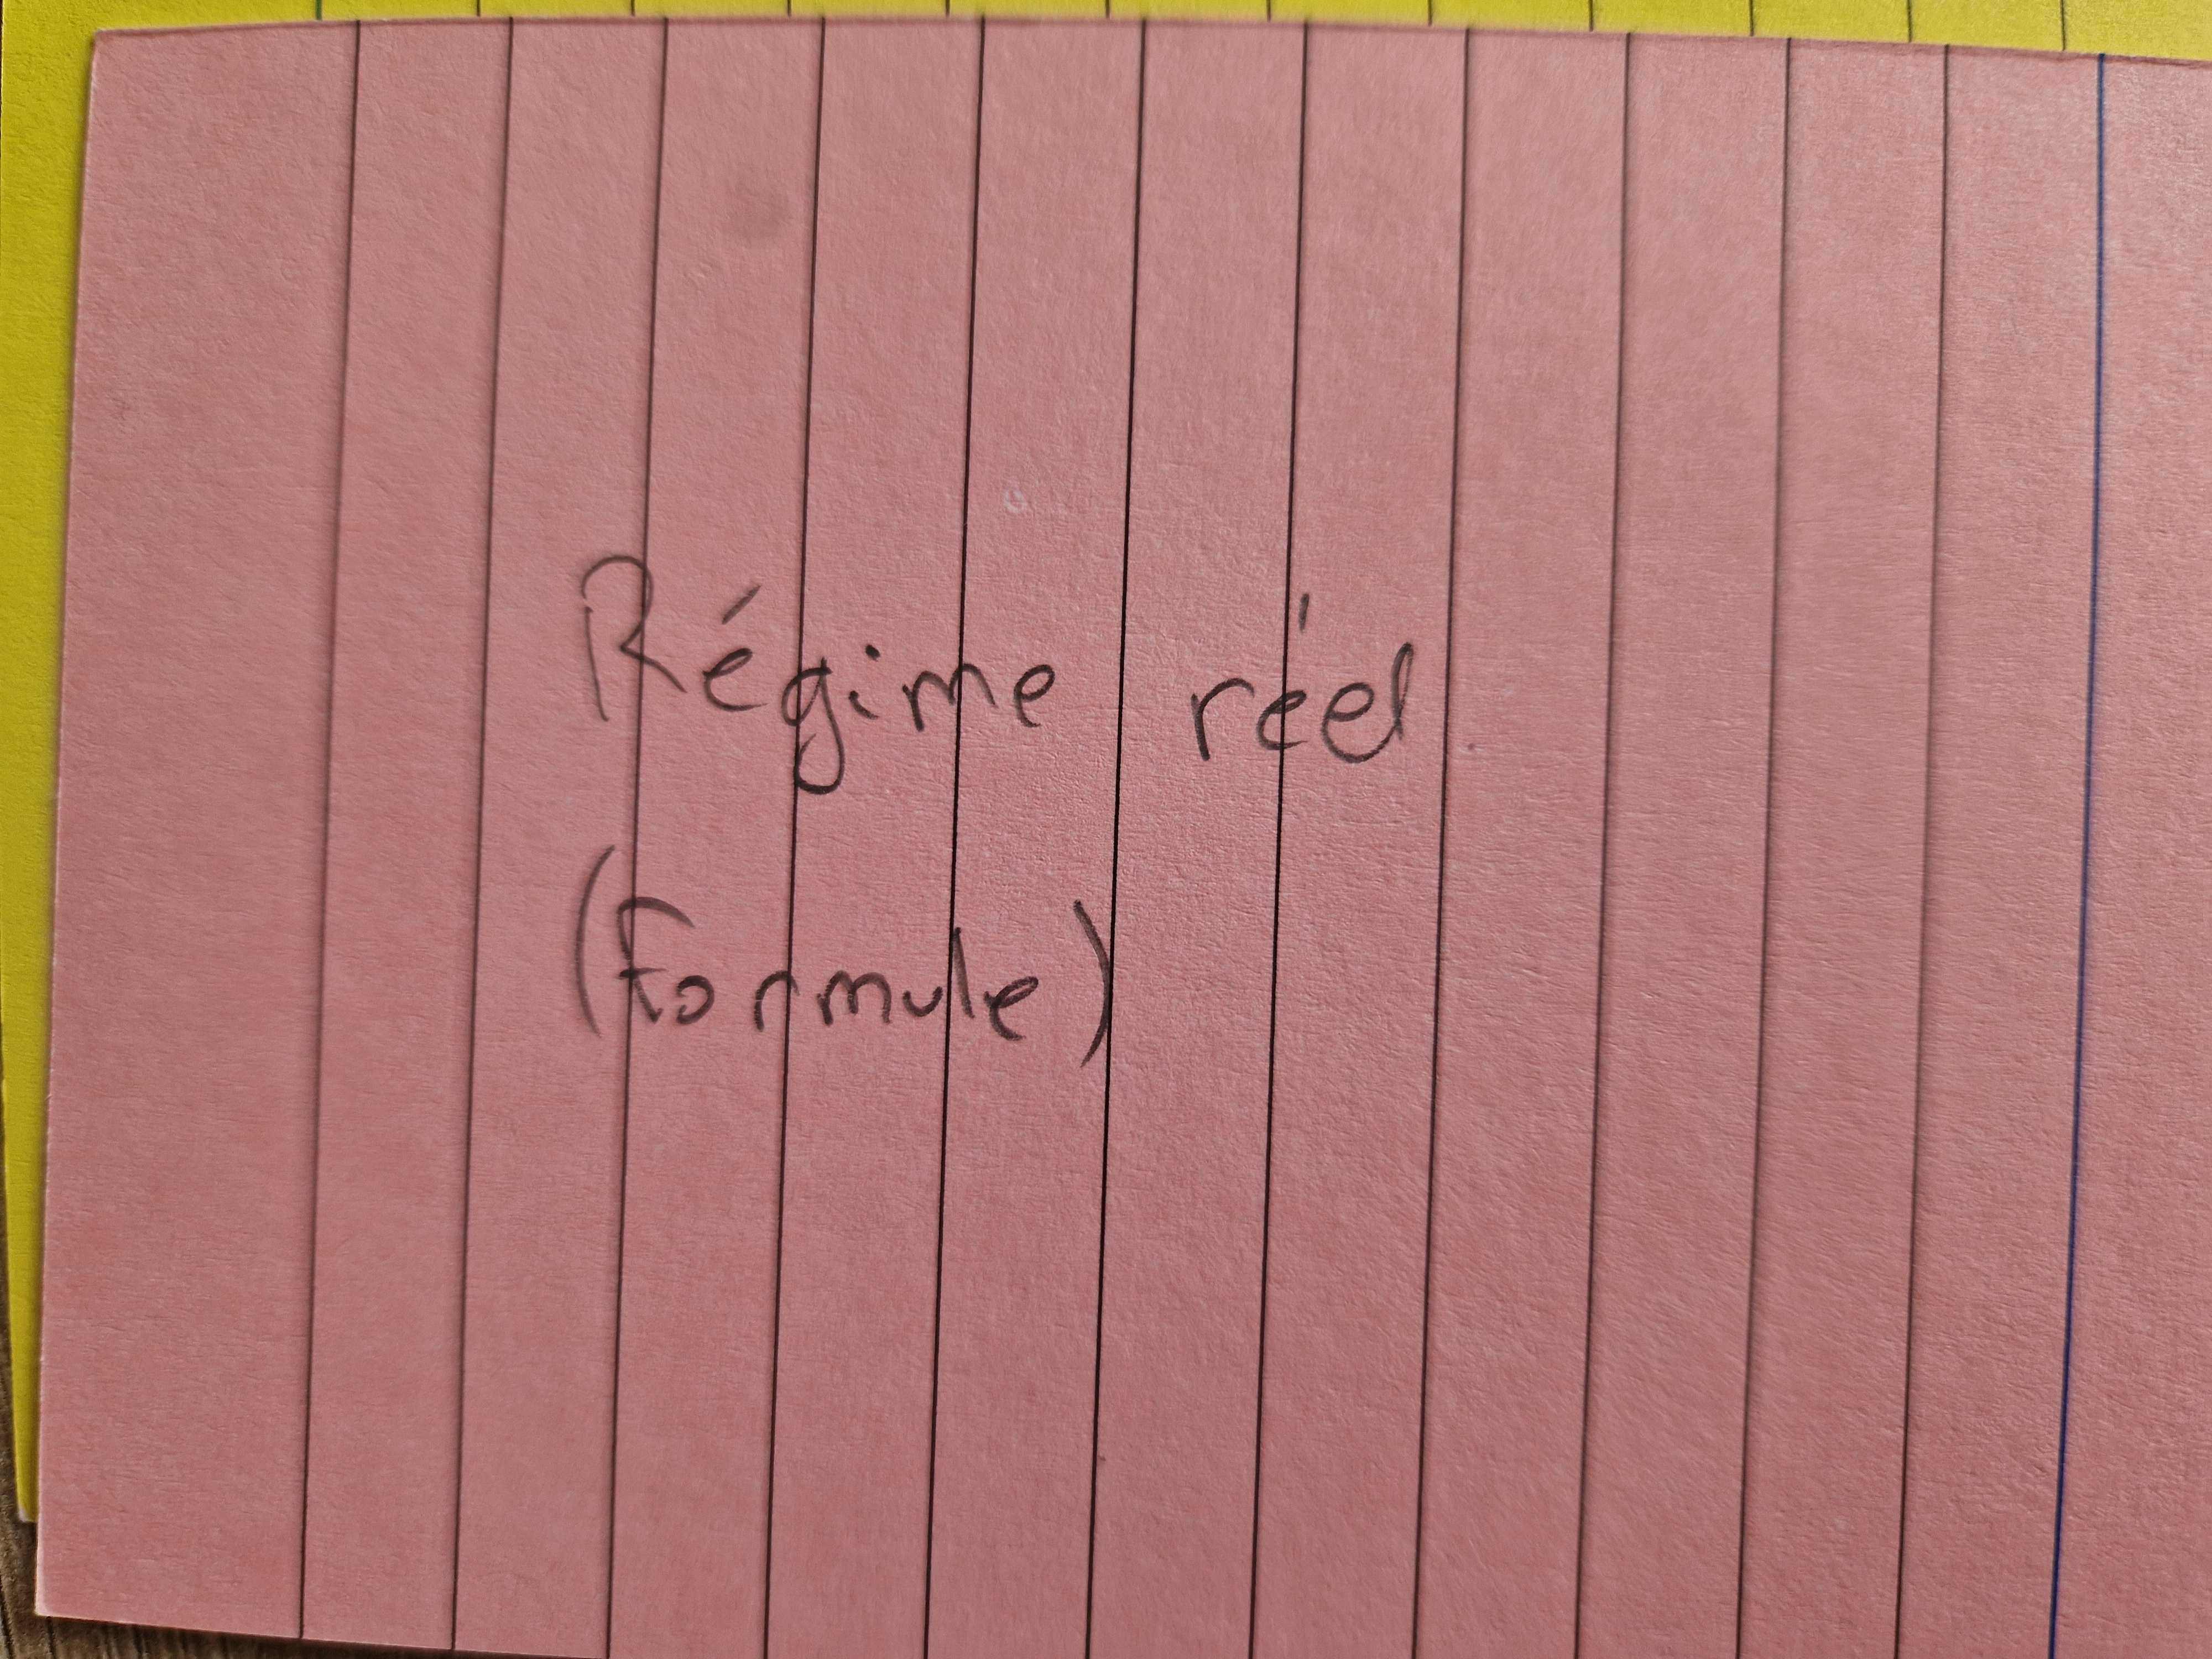 Régime réel
(formule)